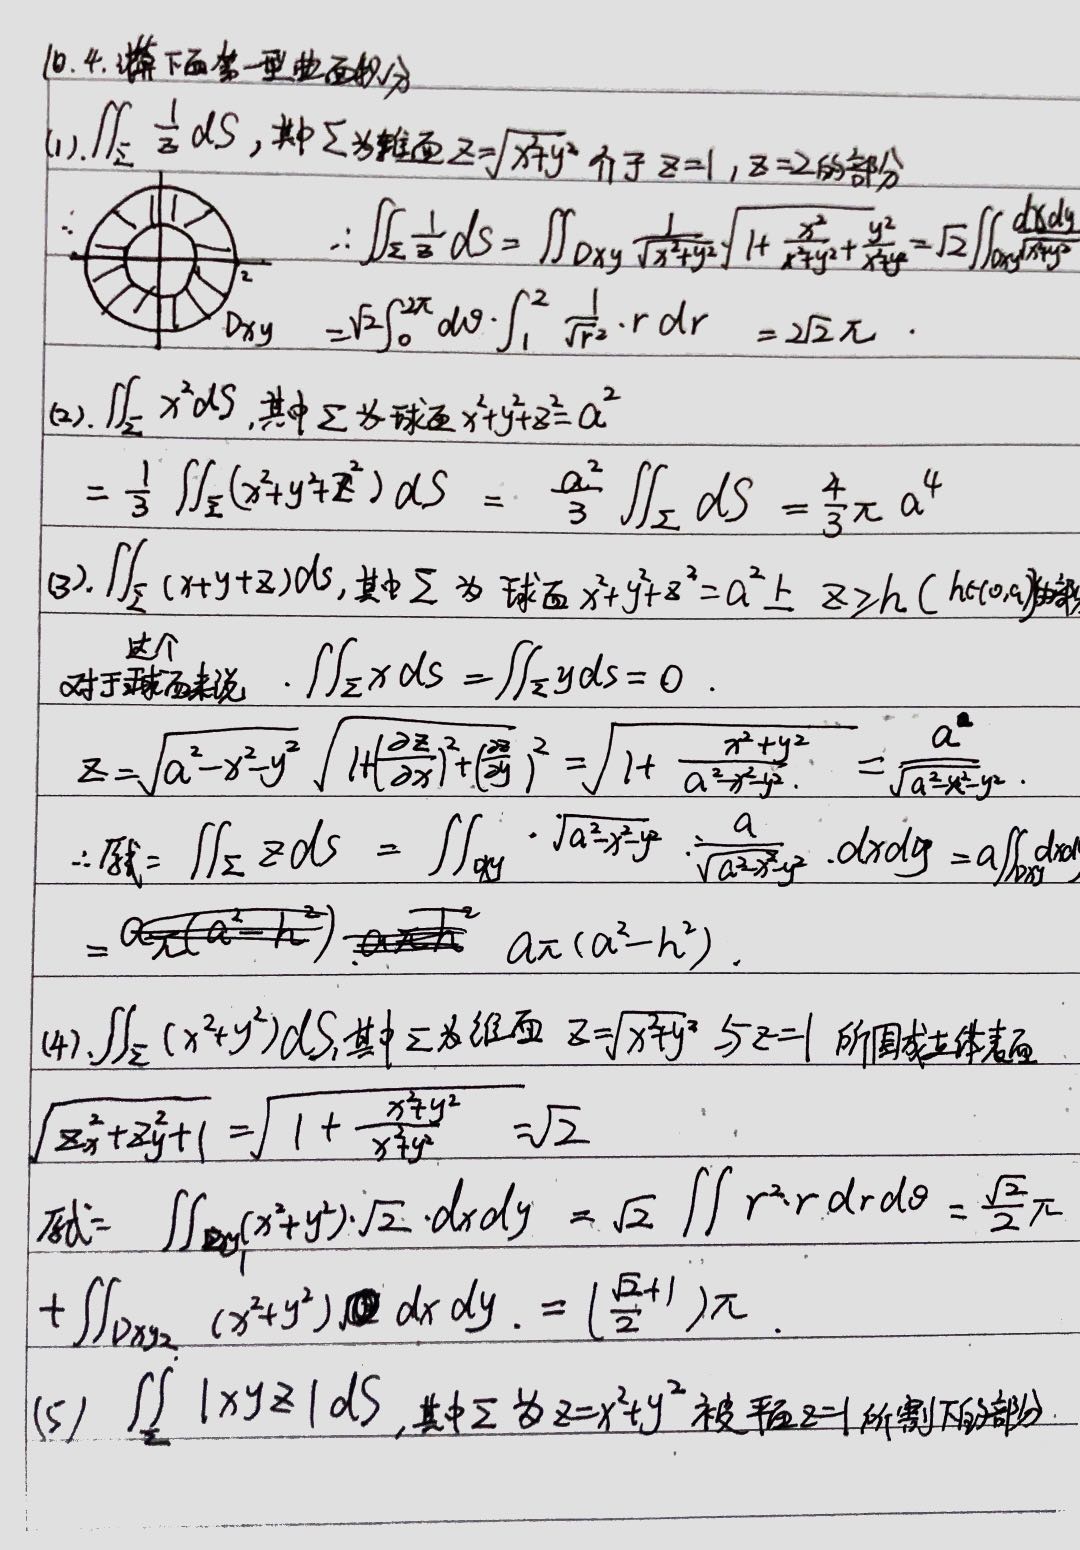 10.4.算下面第一型曲面积分
(1).∬_Σ 1/z dS,其中Σ为锥面z=√(x²+y²) 介于z=1,z=2的部分
∴ ∬_Σ 1/z dS = ∬_Dxy 1/√(x²+y²) √(1+x²/(x²+y²)+y²/(x²+y²)) = √2∬_Dxy dxdy/√(x²+y²)
2
Dxy =√2∫₀^2π dθ·∫₁² 1/√r²·r dr = 2√2π.
(2).∬_Σ x²dS,其中Σ为球面x²+y²+z²=a²
= 1/3 ∬_Σ(x²+y²+z²)dS = a²/3 ∬_Σ dS = 4/3 π a⁴
(3).∬_Σ(x+y+z)ds,其中Σ为球面x²+y²+z²=a²上 z≥h(h∈(0,a))的部分
对于这个球面来说.∬_Σ x ds=∬_Σ y ds=0.
z=√(a²-x²-y²) √(1+(∂z/∂x)²+(∂z/∂y)²) = √(1+(x²+y²)/(a²-x²-y²)) = a/√(a²-x²-y²).
∴原式= ∬_Σ z ds = ∬_Dxy ·√(a²-x²-y²)·a/√(a²-x²-y²)·dxdy = a∬_Dxy dxdy
= aπ(a²-h²).
(4).∬_Σ(x²+y²)dS,其中Σ为锥面 z=√(x²+y²) 与z=1 所围成立体表面
√(z_x²+z_y²+1) = √(1+(x²+y²)/(x²+y²)) =√2
原式= ∬_Dxy₁(x²+y²)·√2·dxdy = √2∬ r²·r dr dθ = √2/2 π
+∬_Dxy₂ (x²+y²) dx dy. = ((√2+1)/2)π.
(5) ∬_Σ |xyz|dS,其中Σ为z=x²+y²被平面z=1所割下的部分